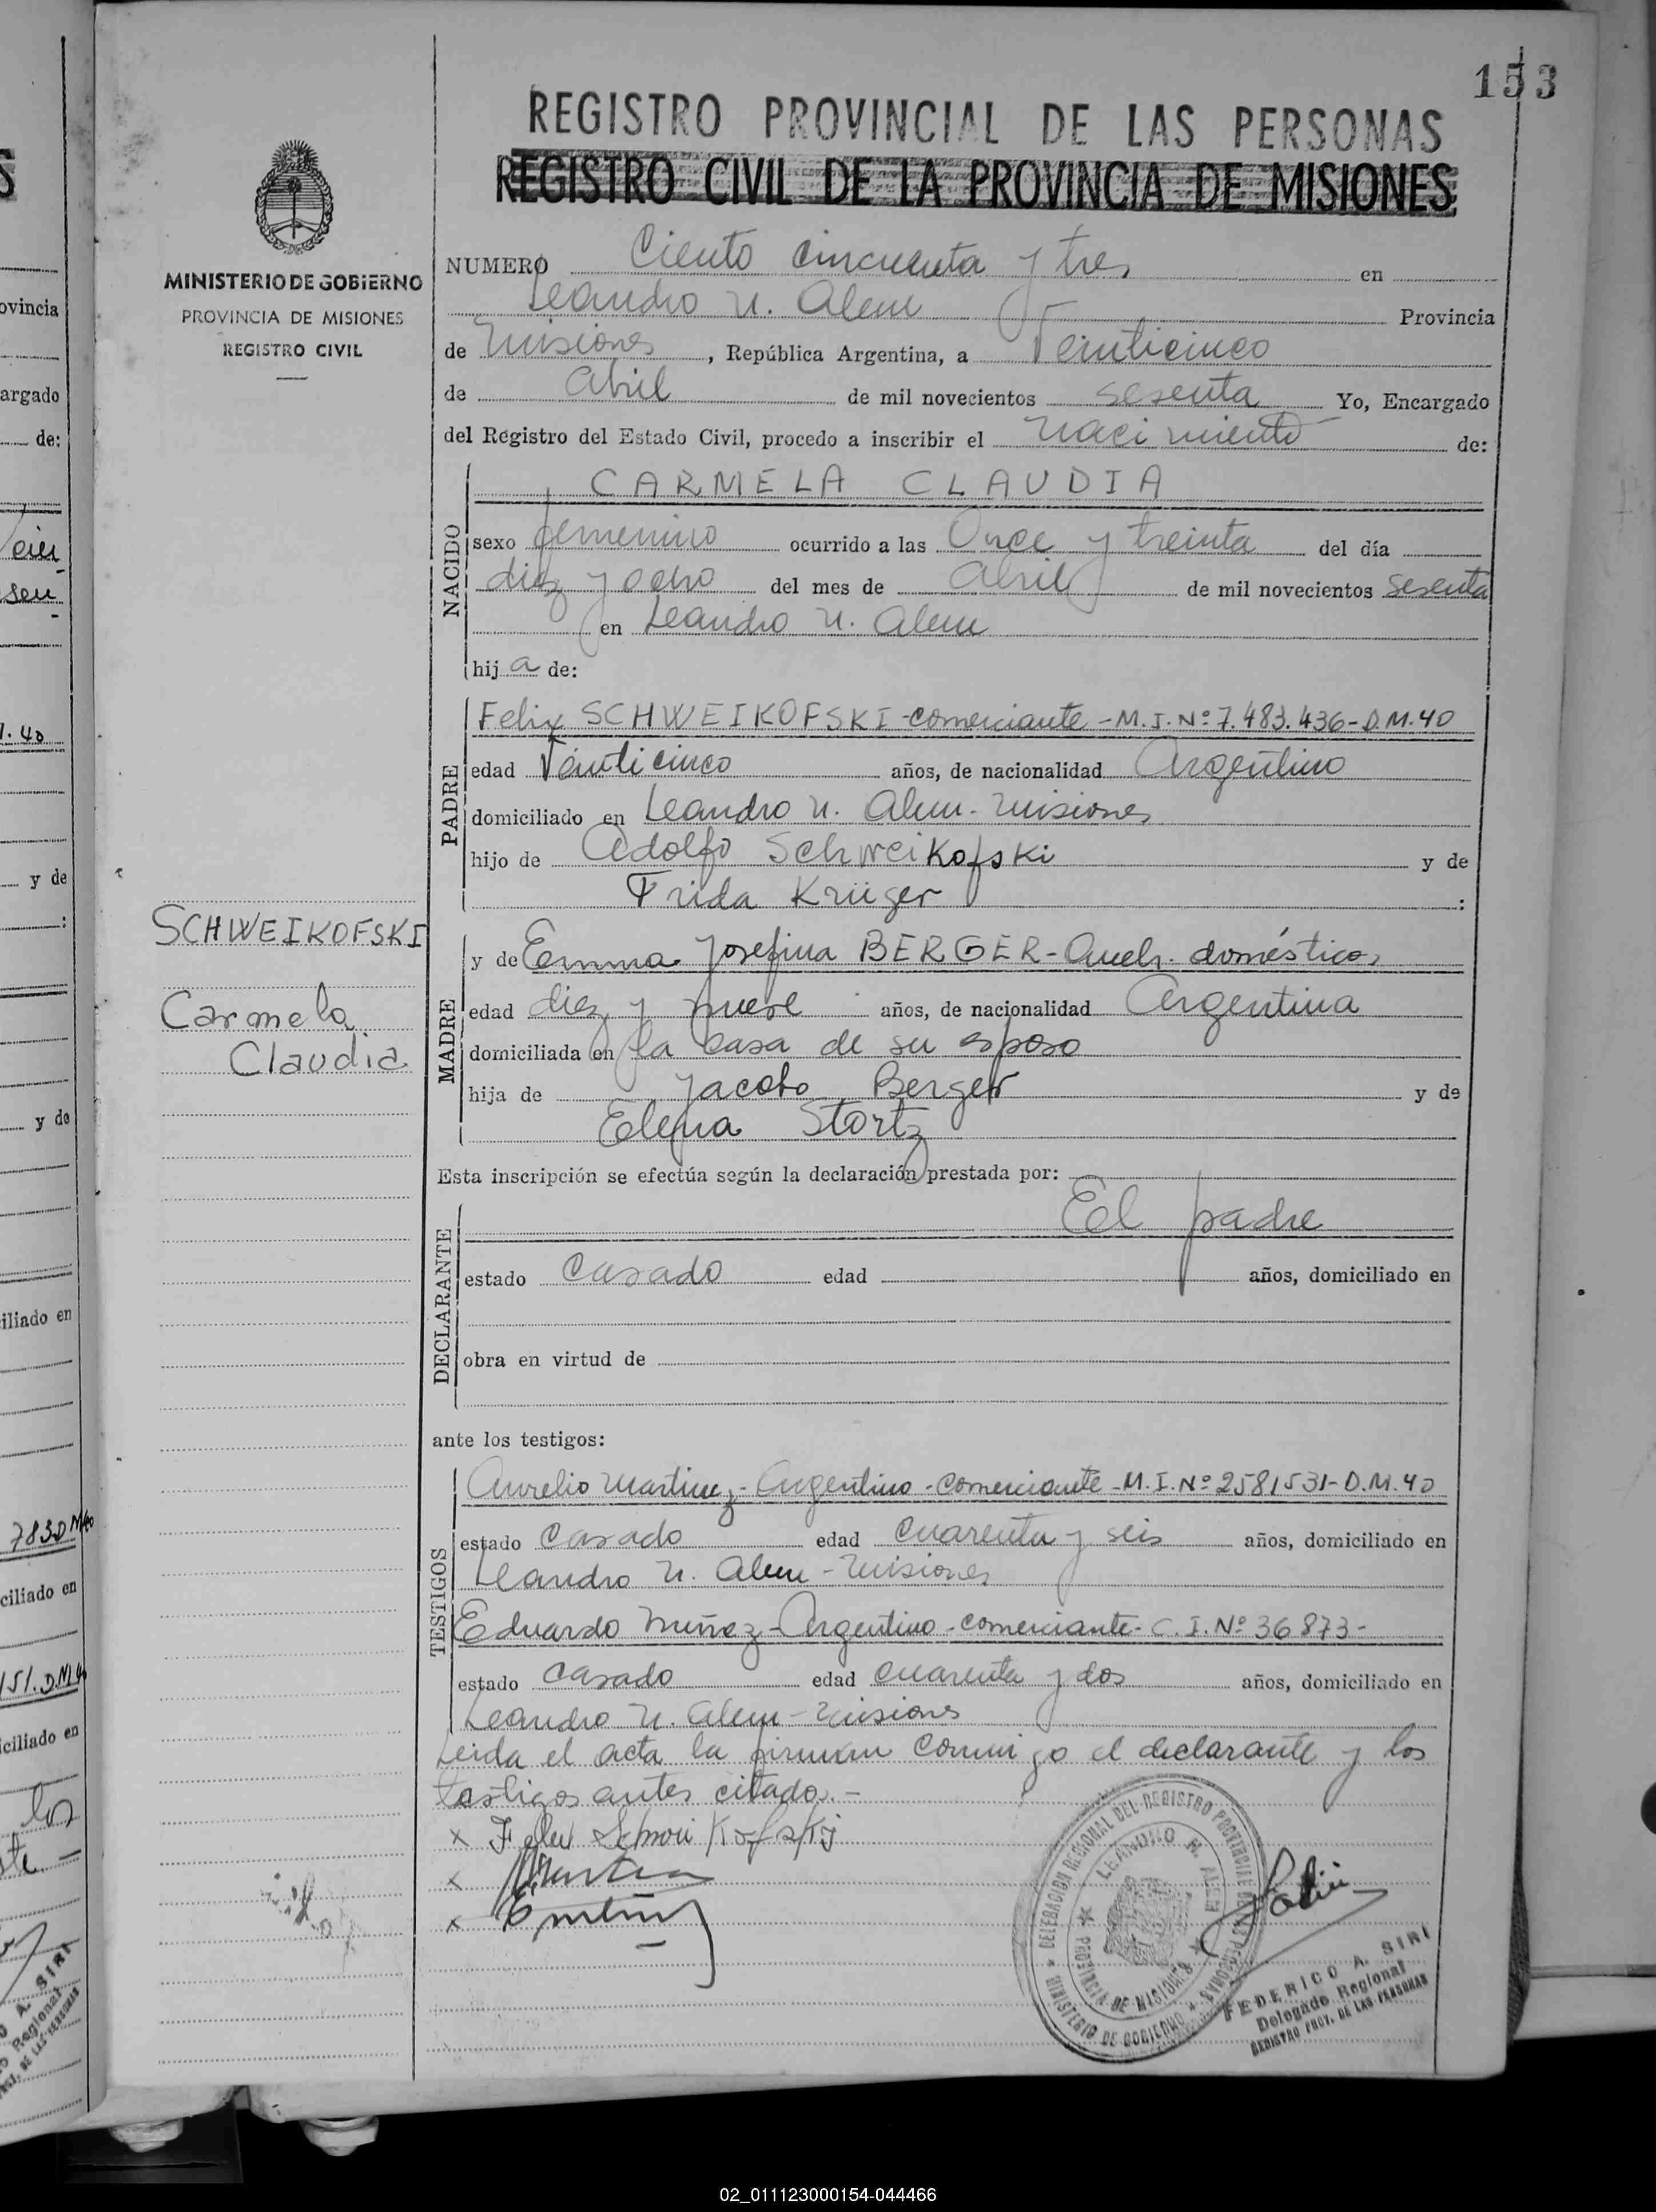 153
REGISTRO PROVINCIAL DE LAS PERSONAS
REGISTRO CIVIL DE LA PROVINCIA DE MISIONES
MINISTERIO DE GOBIERNO
PROVINCIA DE MISIONES
REGISTRO CIVIL
NUMERO Ciento cincuenta y tres en
Leandro N. Alem Provincia
de Misiones, República Argentina, a Veinticinco
de abril de mil novecientos sesenta Yo, Encargado
del Registro del Estado Civil, procedo a inscribir el Nacimiento de:
NACIDO
CARMELA CLAUDIA
sexo femenino ocurrido a las Once y treinta del día
diez y ocho del mes de abril de mil novecientos sesenta
en Leandro N. Alem
hij a de:
PADRE
Felix SCHWEIKOFSKI - comerciante - M.I. Nº 7.483.436 - D.M. 40
edad Veinticinco años, de nacionalidad Argentino
domiciliado en Leandro N. Alem - Misiones
hijo de Adolfo Schweikofski y de
Frida Krüger :
SCHWEIKOFSKI
Carmela
Claudia
MADRE
y de Emma Josefina BERGER - Queh. domésticos
edad diez y nueve años, de nacionalidad Argentina
domiciliada en la casa de su esposo
hija de Jacobo Berger y de
Elena Stortz
Esta inscripción se efectúa según la declaración prestada por:
DECLARANTE
El padre
estado Casado edad años, domiciliado en
obra en virtud de
ante los testigos:
TESTIGOS
Aurelio Martinez - Argentino - comerciante - M.I. Nº 2581531 - D.M. 40
estado Casado edad Cuarenta y seis años, domiciliado en
Leandro N. Alem - Misiones
Eduardo Nuñez - Argentino - comerciante - C.I. Nº 36873 -
estado Casado edad Cuarenta y dos años, domiciliado en
Leandro N. Alem - Misiones
Leida el acta la firman conmigo el declarante y los
testigos antes citados. -
MINISTERIO DE GOBIERNO * DELEGACION REGIONAL DEL REGISTRO PROVINCIAL DE LAS PERSONAS
LEANDRO N. ALEM * PROVINCIA DE MISIONES *
FEDERICO A. SIRI
Delegado Regional
REGISTRO PROV. DE LAS PERSONAS
02_011123000154-044466